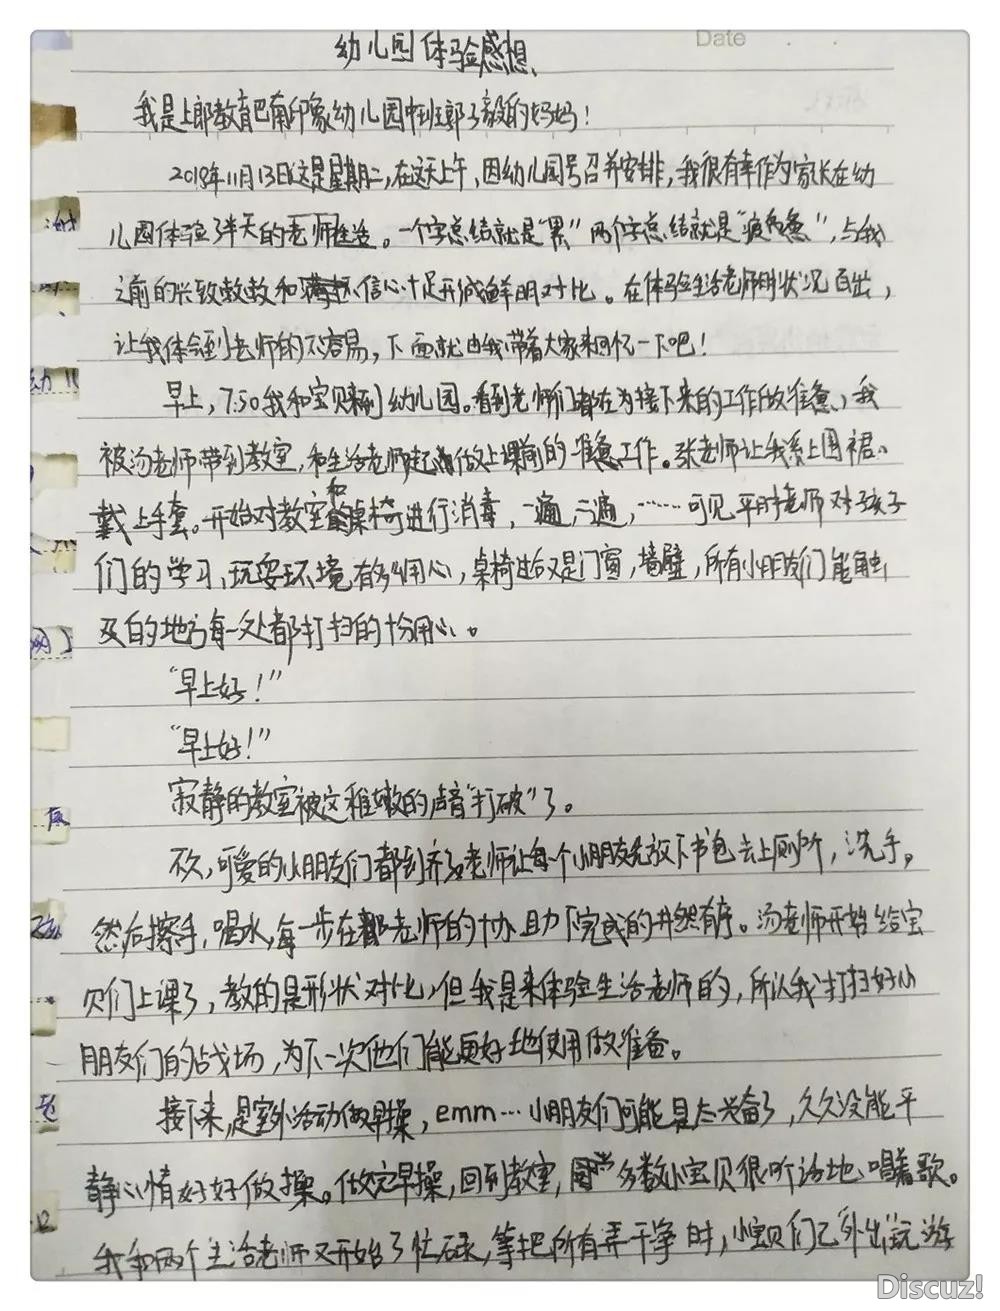 Date
幼儿园体验感想
我是上郎教育巴南印象幼儿园中班郭子毅的妈妈！
2018年11月13日这是星期二，在这天上午，因幼儿园号召并安排，我很有幸作为家长在幼
儿园体验了半天的老师生活。一个字总结就是“累”两个字总结就是“疲惫”，与我
之前的兴致勃勃和信心十足形成鲜明对比。在体验生活老师时状况百出，
让我体会到老师的不容易，下面就由我带着大家来回忆一下吧！
早上，7:50我和宝贝来到幼儿园。看到老师们都在为接下来的工作做准备，我
被汤老师带到教室，和生活老师一起做上课前的准备工作。张老师让我系上围裙、
戴上手套。开始对教室和桌椅进行消毒，一遍，二遍，……可见平时老师对孩子
们的学习、玩耍环境有多用心，桌椅过后又是门窗，墙壁，所有小朋友们能触
及的地方每一处都打扫的十分用心。
“早上好！”
“早上好！”
寂静的教室被这稚嫩的声音“打破”了。
不久，可爱的小朋友们都到齐了老师让每一个小朋友先放下书包去上厕所，洗手，
然后擦手，喝水，每一步在老师的协助下完成的井然有序。汤老师开始给宝
贝们上课了，教的是形状对比，但我是来体验生活老师的，所以我打扫好小
朋友们的战场，为下一次他们能更好地使用做准备。
接下来，是室外活动做早操，emm…小朋友们可能是太兴奋了，久久没能平
静心情好好做操。做完早操，回到教室，多数小宝贝很听话地唱着歌。
我和两个生活老师又开始了忙碌，等把所有弄干净时，小宝贝们已“外出”玩游
Discuz!